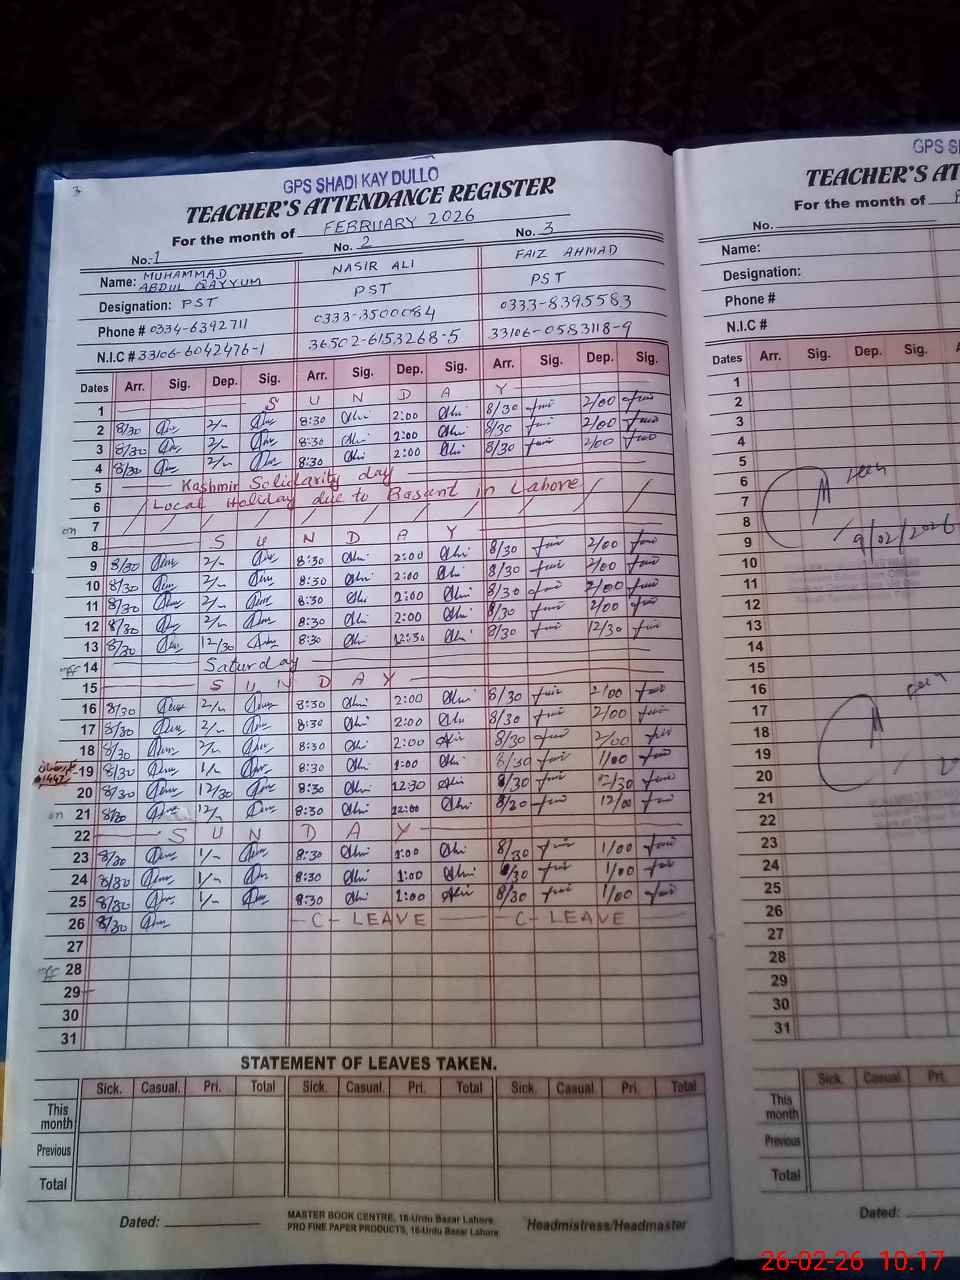 3
GPS SHADI KAY DULLO
TEACHER'S ATTENDANCE REGISTER
For the month of FEBRUARY 2026
No. 1 No. 2 No. 3
Name: MUHAMMAD ABDUL QAYYUM NASIR ALI FAIZ AHMAD
Designation: PST PST PST
Phone # 0334-6392711 0333-3500084 0333-8395583
N.I.C # 33106-6042476-1 36502-6153268-5 33106-0583118-9
Dates Arr. Sig. Dep. Sig. Arr. Sig. Dep. Sig. Arr. Sig. Dep. Sig.
1 S U N D A Y
2 8/30 2/- 8:30 2:00 8/30 2/00
3 8/30 2/- 8:30 2:00 8/30 2/00
4 8/30 2/- 8:30 2:00 8/30 2/00
5 Kashmir Solidarity day
6 Local Holiday due to Basant in Lahore
on 7
8 S U N D A Y
9 8/30 2/- 8:30 2:00 8/30 2/00
10 8/30 2/- 8:30 2:00 8/30 2/00
11 8/30 2/- 8:30 2:00 8/30 2/00
12 8/30 2/- 8:30 2:00 8/30 2/00
13 8/30 12/30 8:30 12:30 8/30 12/30
14 Saturday
15 S U N D A Y
16 8/30 2/- 8:30 2:00 8/30 2/00
17 8/30 2/- 8:30 2:00 8/30 2/00
18 8/30 2/- 8:30 2:00 8/30 2/00
19 8/30 1/- 8:30 1:00 8/30 1/00
20 8/30 12/30 8:30 12:30 8/30 12/30
on 21 8/30 12/- 8:30 12:00 8/30 12/00
22 S U N D A Y
23 8/30 1/- 8:30 1:00 8/30 1/00
24 8/30 1/- 8:30 1:00 8/30 1/00
25 8/30 1/- 8:30 1:00 8/30 1/00
26 8/30 C- LEAVE C- LEAVE
27
28
29
30
31
STATEMENT OF LEAVES TAKEN.
Sick. Casual. Pri. Total Sick. Casual. Pri. Total Sick. Casual. Pri. Total
This month
Previous
Total
Dated:
MASTER BOOK CENTRE, 16-Urdu Bazar Lahore.
PRO FINE PAPER PRODUCTS, 16-Urdu Bazar Lahore.
Headmistress/Headmaster
GPS S
TEACHER'S AT
For the month of
No.
Name:
Designation:
Phone #
N.I.C #
Dates Arr. Sig. Dep. Sig.
1
2
3
4
5
6
7
8
9 9/02/2026
10
11
12
13
14
15
16
17
18
19
20
21
22
23
24
25
26
27
28
29
30
31
Sick. Casual. Pri.
This month
Previous
Total
Dated:
26-02-26 10.17